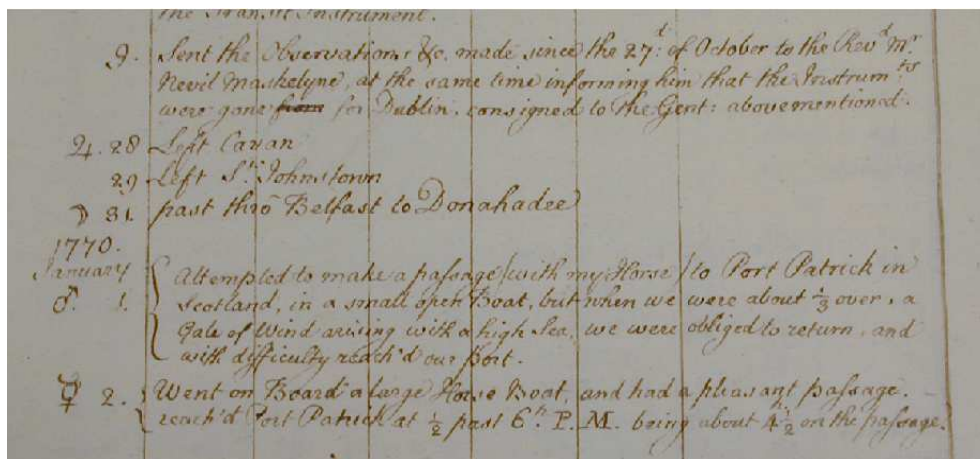 the Transit Instrument.
9. Sent the Observations &c. made since the 27d. of October to the Revd. Mr.
Nevil Maskelyne, at the same time informing him that the Instrumts.
were gone from for Dublin, consigned to the Gent: abovementiond.
♃. 28 Left Cavan
29 Left St. Johnstown
☽ 31. past thrõ Belfast to Donahadee
1770.
January
Attempted to make a passage (with my Horse) to Port Patrick in
♂. 1. Scotland, in a small open Boat, but when we were about 1/3 over, a
Gale of Wind arising with a high Sea, we were obliged to return, and
with difficulty reach'd our Port.
☿ 2. Went on Board a large Horse Boat, and had a pleasant passage.
reach'd Port Patrick at 1/2 past 6h. P.M. being about 4h 1/2 on the passage.